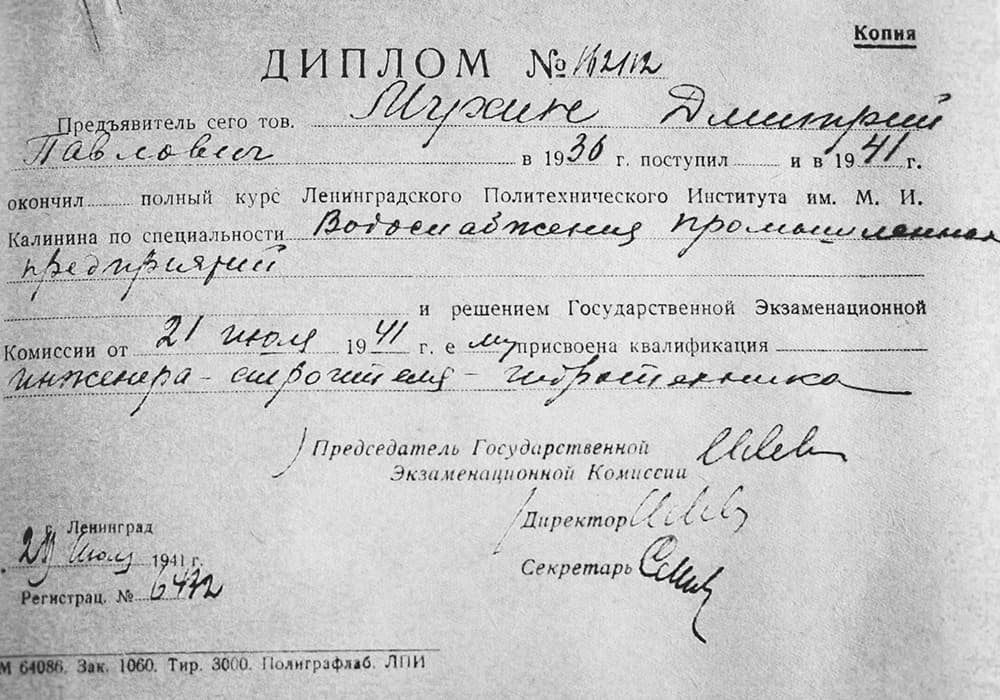 Копия
ДИПЛОМ №
Предъявитель сего тов. Мухин Дмитрий
Павлович в 1936 г. поступил и в 1941 г.
окончил полный курс Ленинградского Политехнического Института им. М. И.
Калинина по специальности Водоснабжения промышленных
предприятий
и решением Государственной Экзаменационной
Комиссии от 21 июля 1941 г. ему присвоена квалификация
инженера-строителя-гидротехника
Председатель Государственной
Экзаменационной Комиссии
Директор
Секретарь
г. Ленинград
Июля 1941 г.
Регистрац. № 6472
М 64086. Зак. 1060. Тир. 3000. Полиграфлаб. ЛПИ